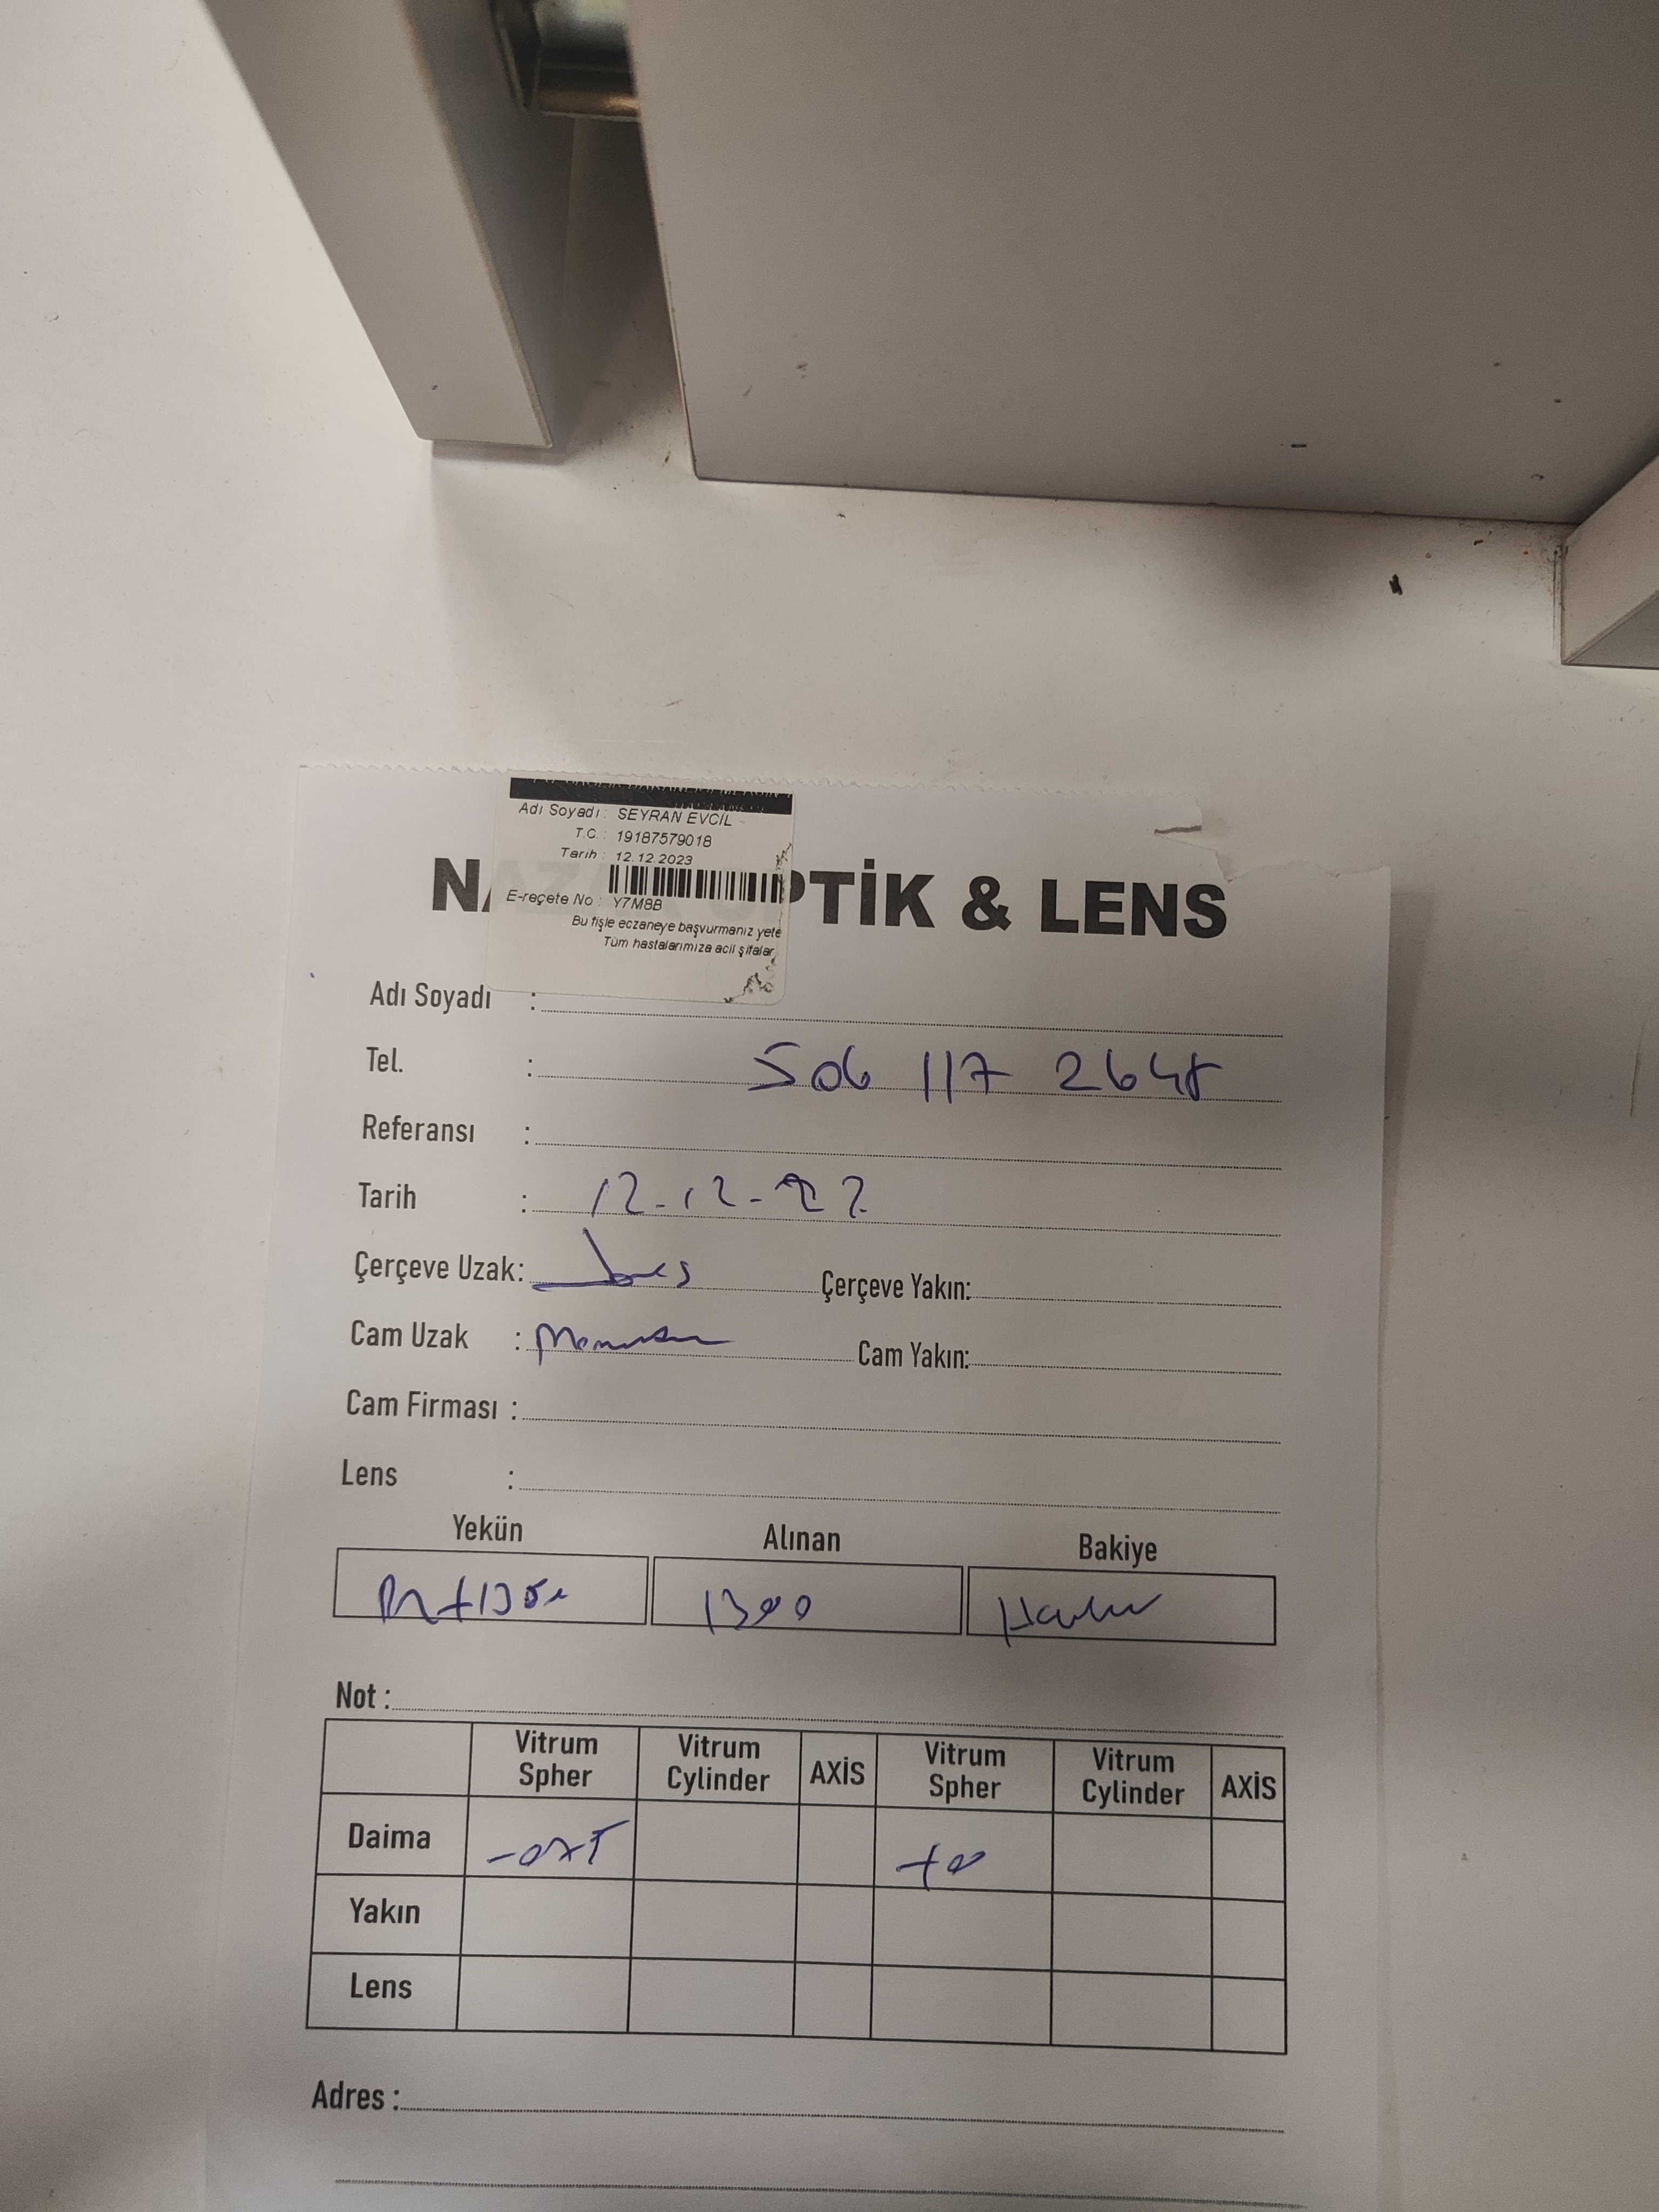 Adı Soyadı : SEYRAN EVCİL -
T.C. : 19187579018
Tarih : 12.12.2023
E-reçete No : Y7M8B
Bu fişle eczaneye başvurmanız yete
Tüm hastalarımıza acil şifalar
PTİK & LENS
Adı Soyadı :
Tel. : 506 117 2648
Referansı :
Tarih : 12-12-
Çerçeve Uzak: Çerçeve Yakın:
Cam Uzak : Cam Yakın:
Cam Firması :
Lens :
Yekün Alınan Bakiye
1300
Not :
Vitrum Spher Vitrum Cylinder AXİS Vitrum Spher Vitrum Cylinder AXİS
Daima
Yakın
Lens
Adres :